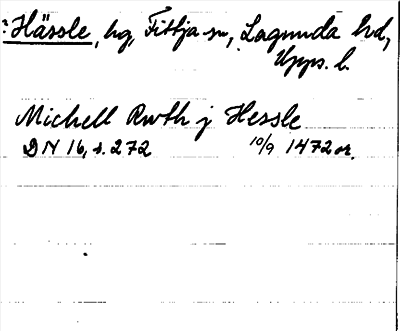 ? Hässle, hg, Fittja sn, Lagunda hd,
Upps. l.
Michell Rwth j Hessle
DN 16, s. 272 10/9 1472 or.